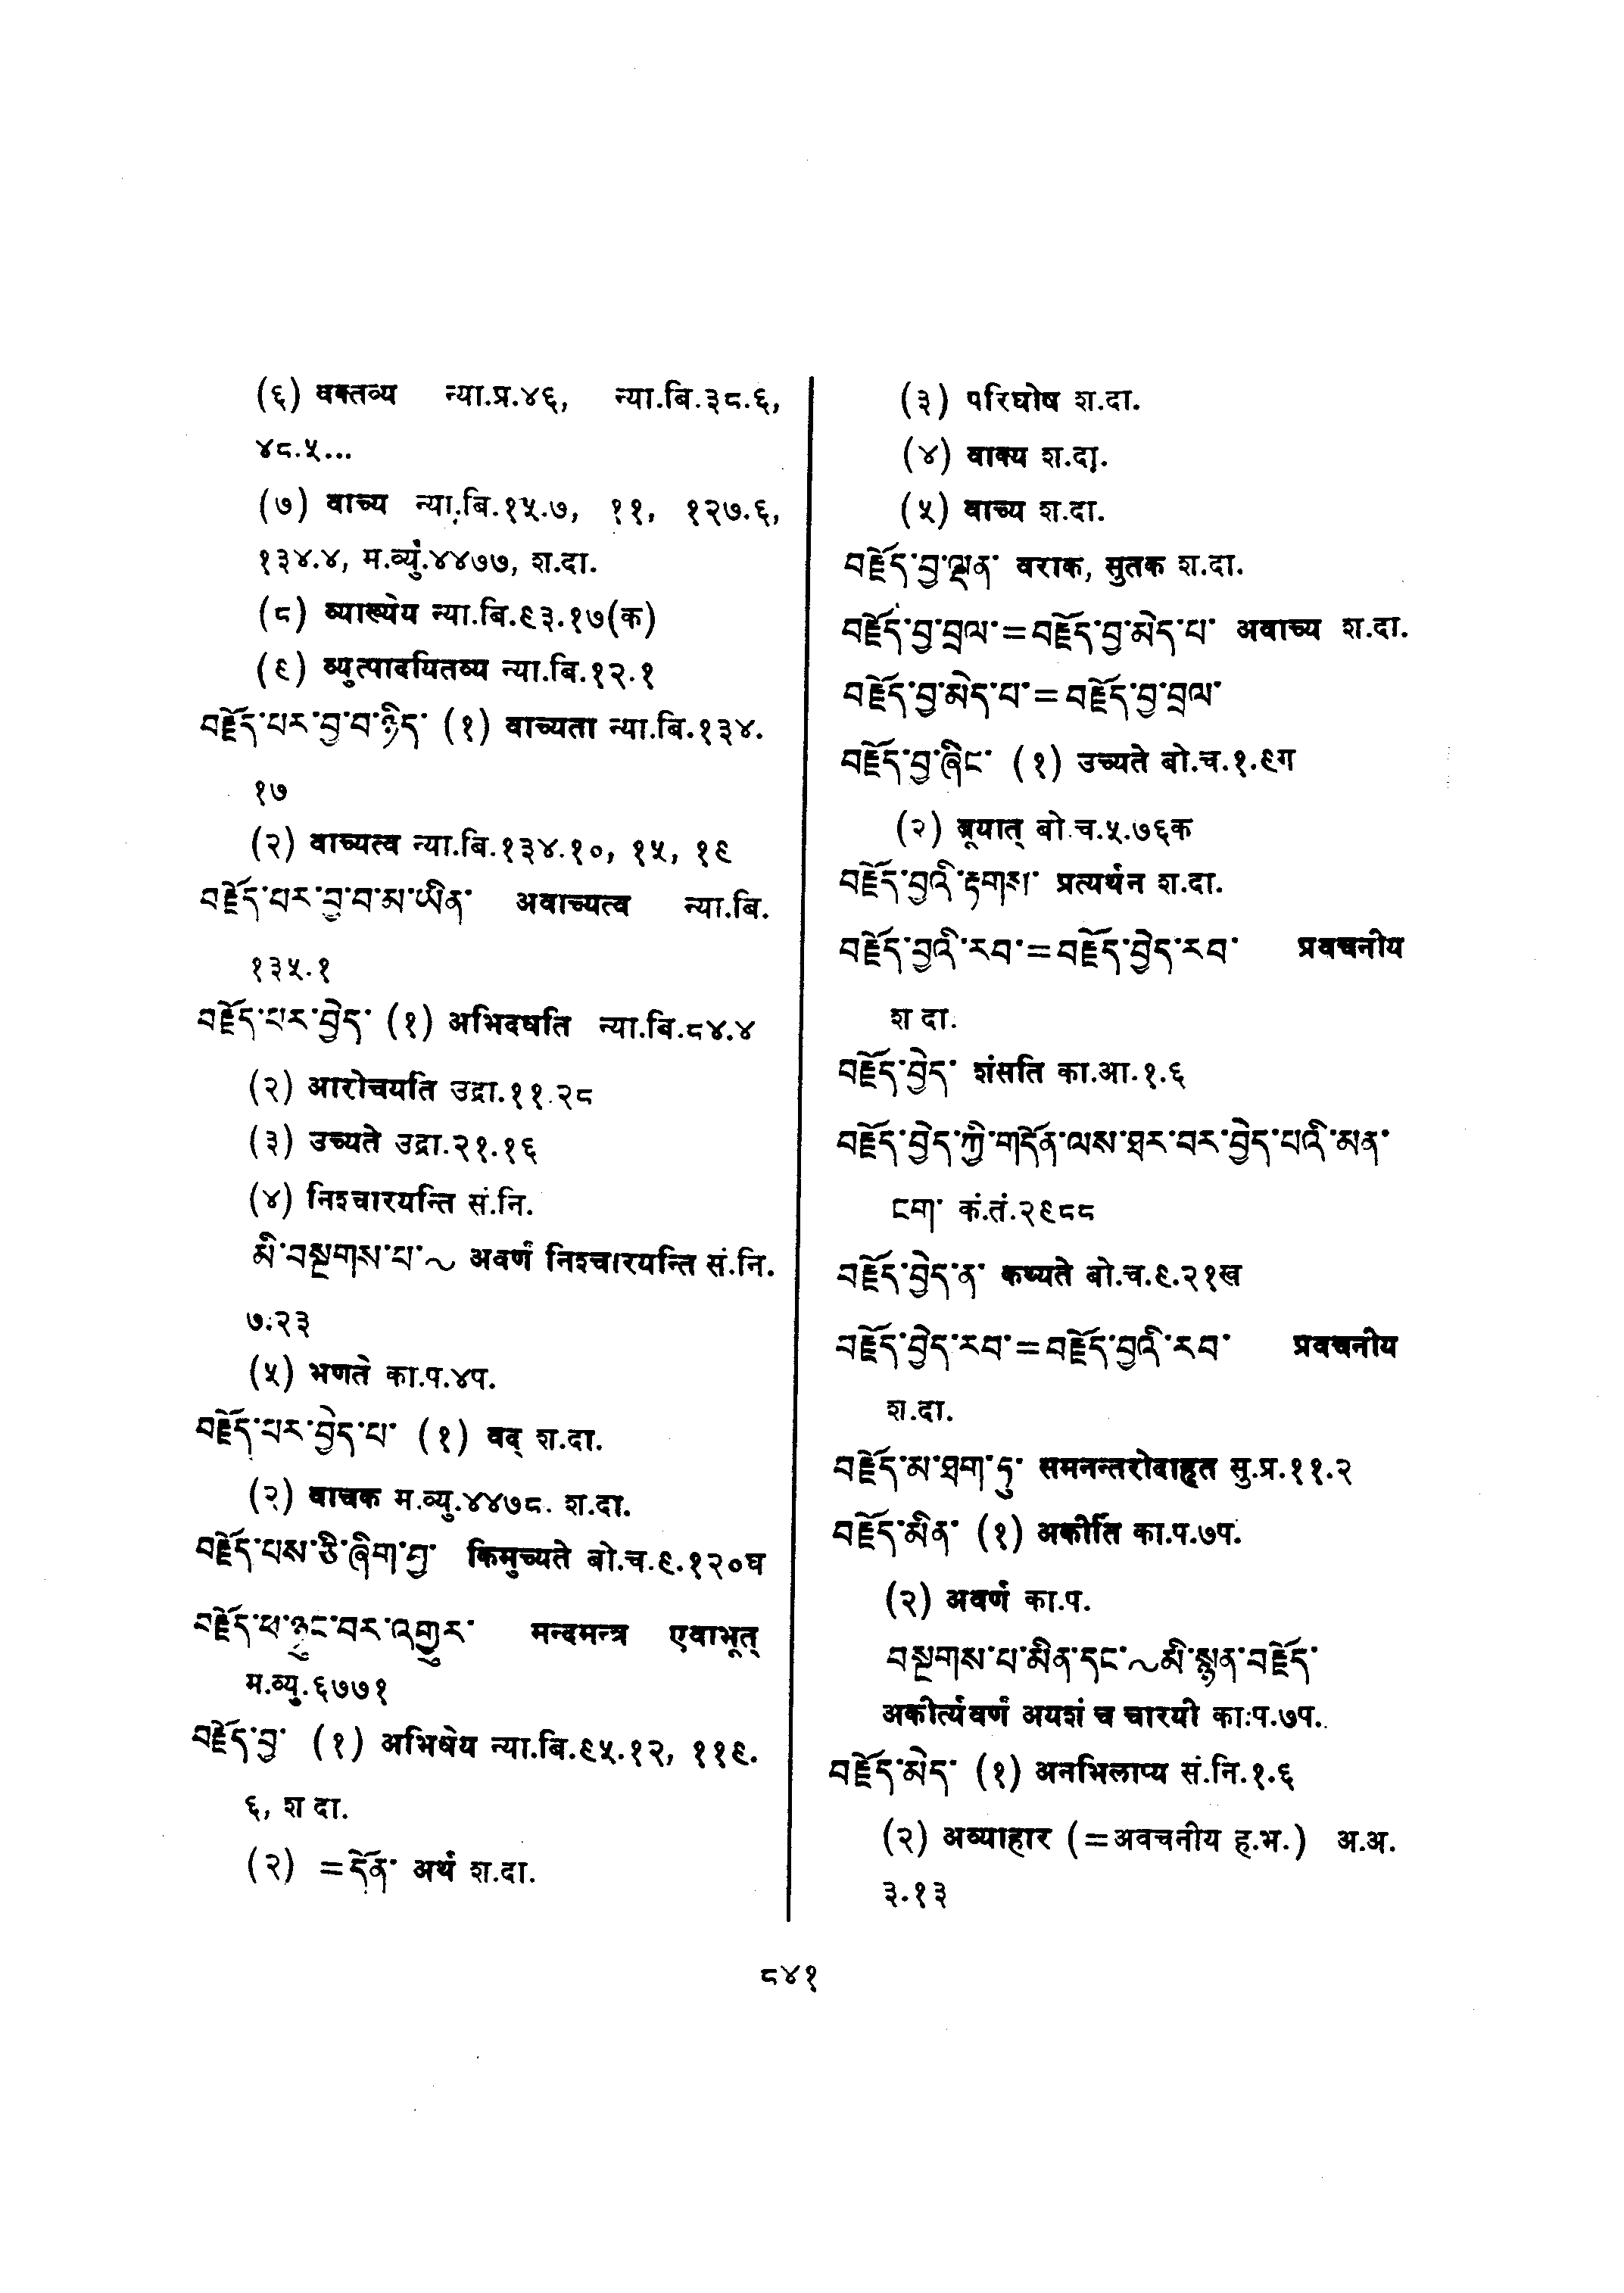 (६) वक्तव्य न्या.प्र.४६, न्या.बि.३८.६,
४८.५...
(७) वाच्य न्या.बि.१५.७, ११, १२७.६,
१३४.४, म.व्यु.४४७७, श.दा.
(८) व्याख्येय न्या.बि.९३.१७(क)
(९) व्युत्पादयितव्य न्या.बि.१२.१
བརྗོད་པར་བྱ་བ་ཉིད་ (१) वाच्यता न्या.बि.१३४.
१७
(२) वाच्यत्व न्या.बि.१३४.१०, १५, १९
བརྗོད་པར་བྱ་བ་མ་ཡིན་ अवाच्यत्व न्या.बि.
१३५.१
བརྗོད་པར་བྱེད་ (१) अभिदधति न्या.बि.८४.४
(२) आरोचयति उद्रा.११.२८
(३) उच्यते उद्रा.२१.१६
(४) निश्चारयन्ति सं.नि.
མི་བསྔགས་པ་~ अवर्णं निश्चारयन्ति सं.नि.
७.२३
(५) भणते का.प.४प.
བརྗོད་པར་བྱེད་པ་ (१) वद् श.दा.
(२) वाचक म.व्यु.४४७८. श.दा.
བརྗོད་པས་ཅི་ཞིག་བྱ་ किमुच्यते बो.च.९.१२०घ
བརྗོད་ཕ་ཉུང་བར་འགྱུར་ मन्दमन्त्र एवाभूत्
म.व्यु.६७७१
བརྗོད་བྱ་ (१) अभिधेय न्या.बि.९५.१२, ११९.
६, श दा.
(२) =དོན་ अर्थ श.दा.
(३) परिघोष श.दा.
(४) वाक्य श.दा.
(५) वाच्य श.दा.
བརྗོད་བྱ་ལྡན་ वराक, सुतक श.दा.
བརྗོད་བྱ་བྲལ་=བརྗོད་བྱ་མེད་པ་ अवाच्य श.दा.
བརྗོད་བྱ་མེད་པ་=བརྗོད་བྱ་བྲལ་
བརྗོད་བྱ་ཞིང་ (१) उच्यते बो.च.१.९ग
(२) ब्रूयात् बो.च.५.७६क
བརྗོད་བྱའི་རྟགས་ प्रत्यर्थन श.दा.
བརྗོད་བྱའི་རབ་=བརྗོད་བྱེད་རབ་ प्रवचनीय
श दा.
བརྗོད་བྱེད་ शंसति का.आ.१.६
བརྗོད་བྱེད་ཀྱི་གདོན་ལས་ཐར་བར་བྱེད་པའི་མན་
ངག་ कं.तं.२९८८
བརྗོད་བྱེད་ན་ कथ्यते बो.च.९.२१ख
བརྗོད་བྱེད་རབ་=བརྗོད་བྱའི་རབ་ प्रवचनीय
श.दा.
བརྗོད་མ་ཐག་ཏུ་ समनन्तरोदाहृत सु.प्र.११.२
བརྗོད་མིན་ (१) अकीर्ति का.प.७प.
(२) अवर्ण का.प.
བསྔགས་པ་མིན་དང་~མི་སྙན་བརྗོད་
अकीर्त्यवर्ण अयशं च चारयी का.प.७प.
བརྗོད་མེད་ (१) अनभिलाप्य सं.नि.१.६
(२) अव्याहार (=अवचनीय ह.भ.) अ.अ.
३.१३
८४१